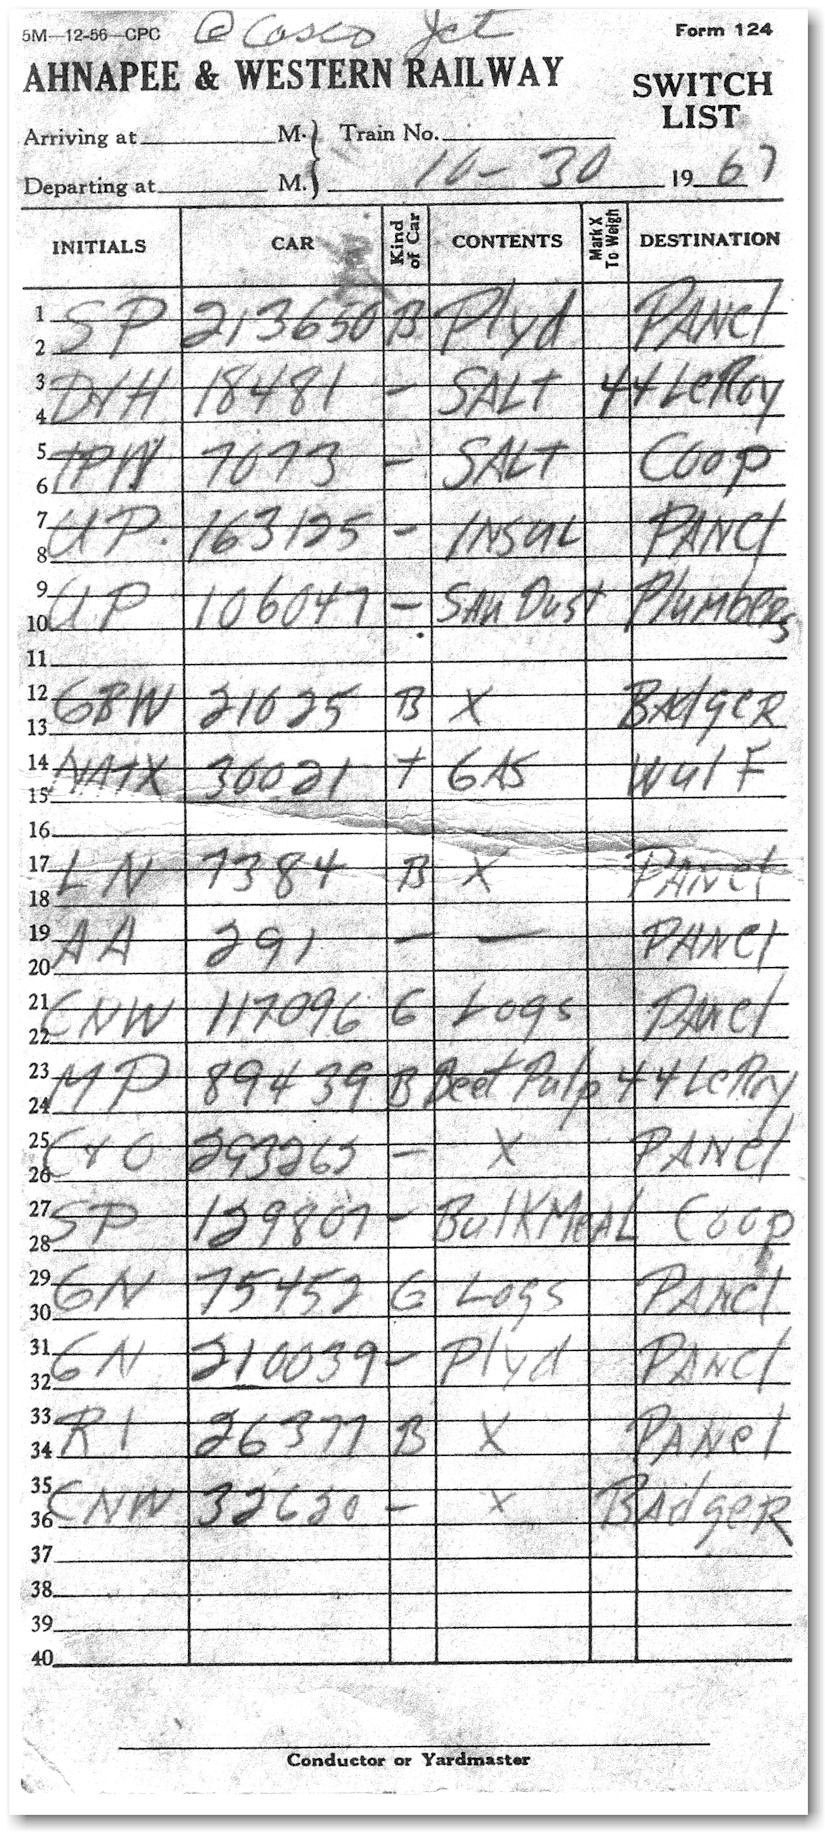 5M—12-56—CPC @ Casco Jct Form 124
AHNAPEE & WESTERN RAILWAY SWITCH LIST
Arriving at M. Train No.
Departing at M. 10-30 1967
INITIALS CAR Kind of Car CONTENTS Mark X To Weigh DESTINATION
1
2 SP 213650 B Plyd PANel
3
4 D&H 18481 - SALT 44 LeRoy
5
6 TPW 7073 - SALT Coop
7
8 UP. 163125 - INSUL PANel
9
10 UP 106047 - SAW Dust Plumbers
11
12
13 GBW 21025 B X BAdgeR
14
15 NATX 30021 T GAS Wulf
16
17
18 LN 7384 B X PANel
19
20 AA 291 - - PANel
21
22 CNW 117096 G Logs PANel
23
24 MP 89439 B Beet Pulp 44 LeRoy
25
26 C&O 293262 - X PANel
27
28 SP 129807 - BulKMeAL Coop
29
30 GN 75452 G Logs PANel
31
32 GN 210039 - Plyd PANel
33
34 RI 26377 B X PANel
35
36 CNW 32620 - X BAdgeR
37
38
39
40
Conductor or Yardmaster